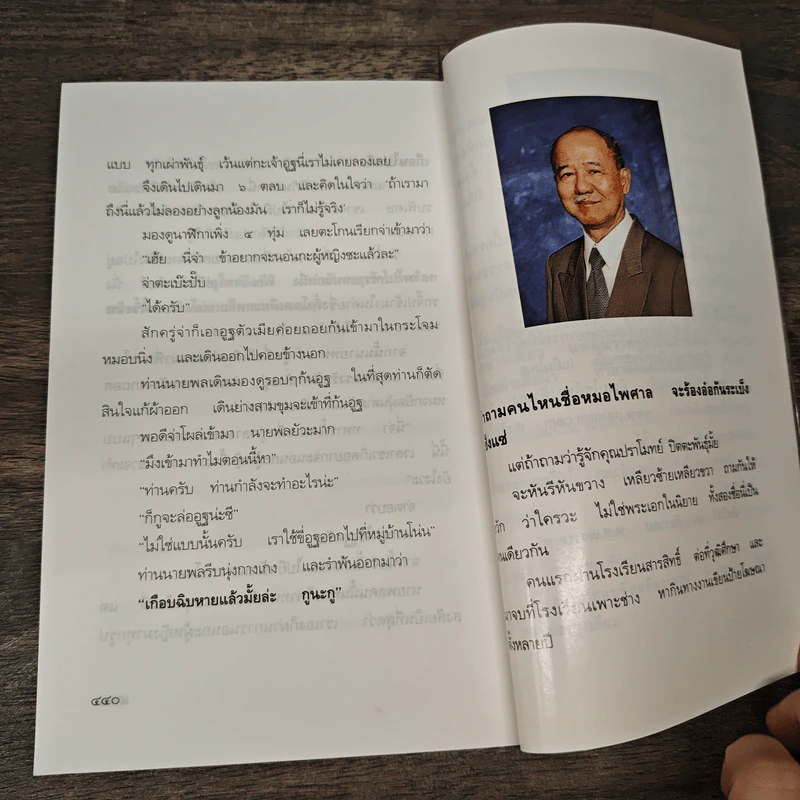 แบบ ทุกเผ่าพันธุ์ เว้นแต่กะเจ้าอูฐนี่เราไม่เคยลองเลย
จึงเดินไปเดินมา ๖ ตลบ และคิดในใจว่า ‘ถ้าเรามา
ถึงนี่แล้วไม่ลองอย่างลูกน้องมัน เราก็ไม่รู้จริง’
มองดูนาฬิกาเพิ่ง ๔ ทุ่ม เลยตะโกนเรียกจ่าเข้ามาว่า
“เฮ้ย นี่จ่า ข้าอยากจะนอนกะผู้หญิงซะแล้วละ”
จ่าตะเบ๊ะปั๊บ
“ได้ครับ”
สักครู่จ่าก็เอาอูฐตัวเมียค่อยถอยก้นเข้ามาในกระโจม
หมอบนิ่ง และเดินออกไปคอยข้างนอก
ท่านนายพลเดินมองดูรอบๆก้นอูฐ ในที่สุดท่านก็ตัด
สินใจแก้ผ้าออก เดินย่างสามขุมจะเข้าที่ก้นอูฐ
พอดีจ่าโผล่เข้ามา นายพลยัวะมาก
“มึงเข้ามาทำไมตอนนี้หา”
“ท่านครับ ท่านกำลังจะทำอะไรน่ะ”
“ก็กูจะล่ออูฐน่ะซี”
“ไม่ใช่แบบนั้นครับ เราใช้ขี่อูฐออกไปที่หมู่บ้านโน่น”
ท่านนายพลรีบนุ่งกางเกง และรำพันออกมาว่า
“เกือบฉิบหายแล้วมั้ยล่ะ กูนะกู”
๔๔๐
ถามคนไหนชื่อหมอไพศาล จะร้องอ๋อกันระเบ็ง
เซ็งแซ่
แต่ถ้าถามว่ารู้จักคุณปราโมทย์ ปิตตะพันธุ์มั้ย
จะหันรีหันขวาง เหลียวซ้ายเหลียวขวา ถามกันให้
ว่าใครวะ ไม่ใช่พระเอกในนิยาย ทั้งสองชื่อนี้เป็น
คนเดียวกัน
คนแรกผ่านโรงเรียนสารสิทธิ์ ต่อที่วุฒิศึกษา และ
มาจบที่โรงเรียนเพาะช่าง หากินทางงานเขียนป้ายโฆษณา
ทั้งหลายปี